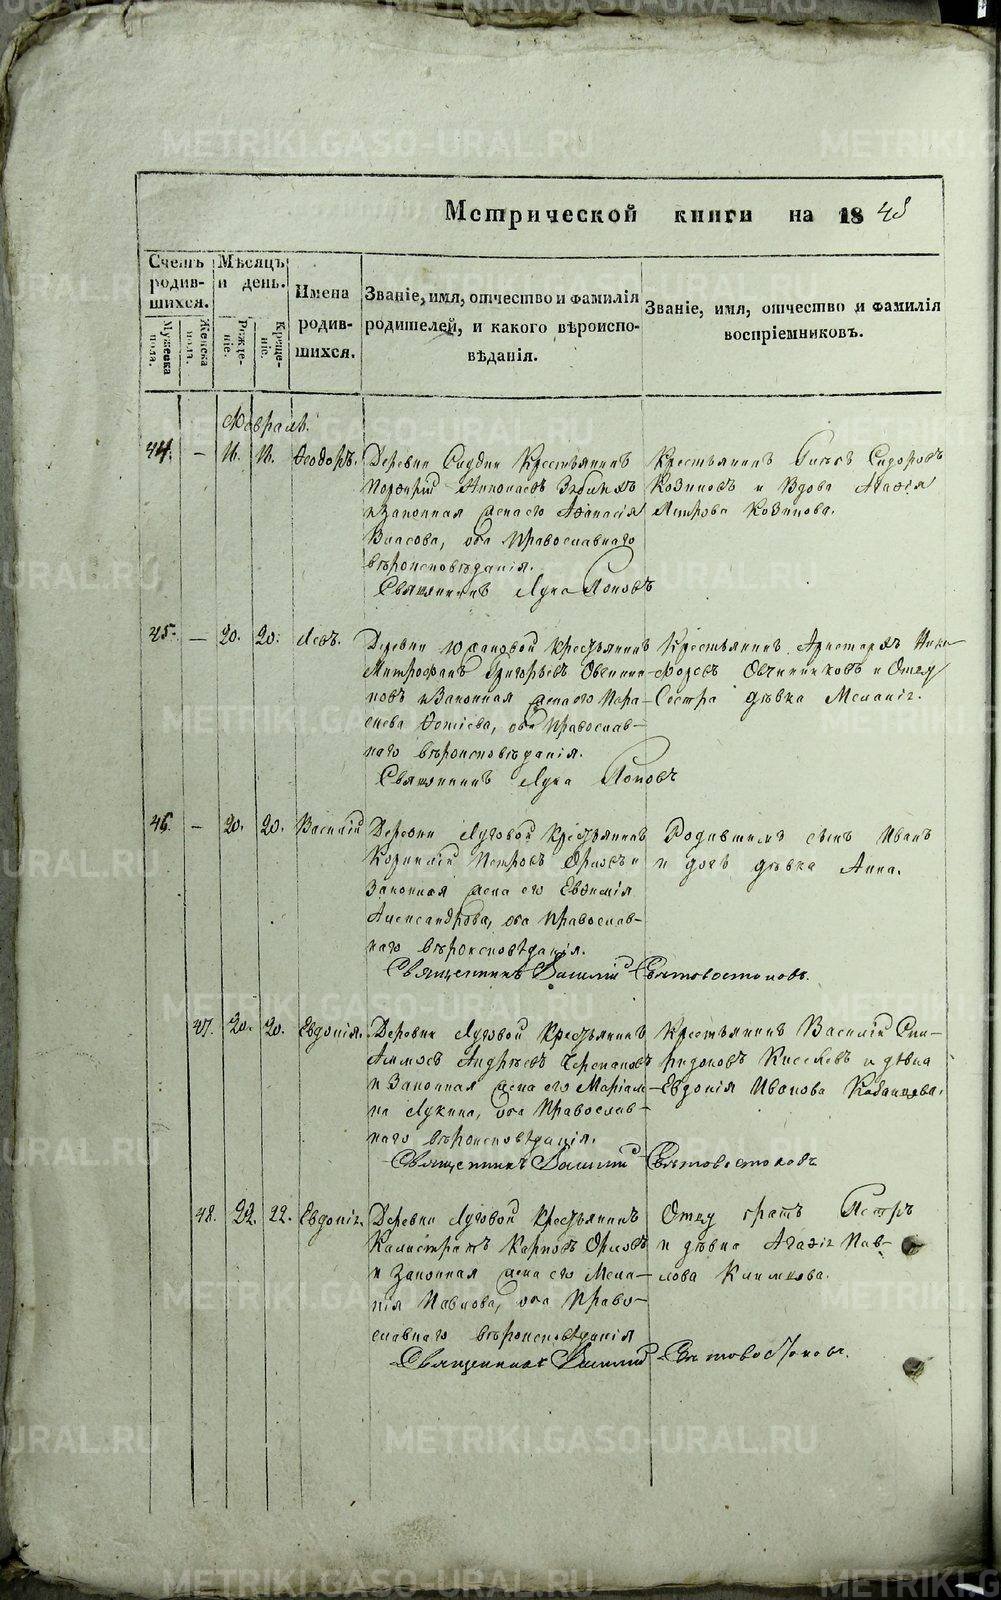 METRIKI.GASO-URAL.RU
Метрической книги на 1848
Счетъ родив-шихся.
Мѣсяцъ и день.
Имена родив-шихся.
Званіе, имя, отчество и фамилія родителей, и какого вѣроиспо-вѣданія.
Званіе, имя, отчество и фамилія воспріемниковъ.
Мужеска пола.
Женска пола.
Рожде-ніе.
Креще-ніе.
Февраль.
44. – 16. 16. Ѳеодоръ.
Деревни Крестьянинъ
Порфирій
и Законная жена его Афанасія
Власова, оба Православнаго
вѣроисповѣданія.
Священникъ Лука Поповъ
Крестьянинъ Сидоровъ
Козиновъ и Вдова Агафія
Петрова Козинова.
45. – 20. 20. Левъ.
Деревни Крестьянинъ
Митрофанъ Григорьевъ Овчинни-
ковъ и Законная жена его Пара-
скева Фотіева, оба Православ-
наго вѣроисповѣданія.
Священникъ Лука Поповъ
Крестьянинъ Аристархъ Ники-
форовъ Овчинниковъ и Отцу
Сестра дѣвка Меланія.
46. – 20. 20. Василій
Деревни Луговой Крестьянинъ
Корнилій Петровъ Орловъ и
Законная жена его Евфимія
Александрова, оба Православ-
наго вѣроисповѣданія.
Священникъ Василій Святовостоковъ.
Родившему сынъ Иванъ
и дочь дѣвка Анна.
47. 20. 20. Евдокія.
Деревни Луговой Крестьянинъ
Аммосъ Андрѣевъ Черепановъ
и Законная жена его Маріам-
на Лукина, оба Православ-
наго вѣроисповѣданія.
Священникъ Василій Святовостоковъ
Крестьянинъ Василій Спи-
ридоновъ Киселевъ и дѣвка
Евдокія Иванова
48. 22. 22. Евдокія.
Деревни Луговой Крестьянинъ
Калистратъ Карповъ Орловъ
и Законная жена его Мела-
нія Павлова, оба Право-
славнаго вѣроисповѣданія
Священникъ Василій Святовостоковъ.
Отцу братъ Петръ
и дѣвка Агафія Пав-
лова Климова.